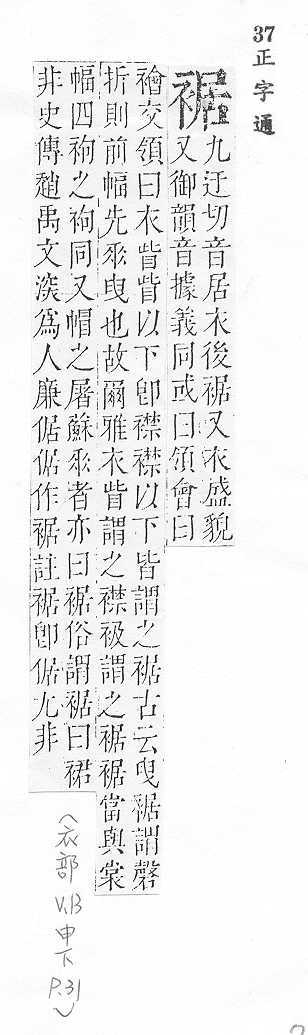 37正字通
裾
九迂切音居衣後裾又衣盛貌
又御韻音據義同或曰領會曰
襘交領曰衣眥眥以下卽襟襟以下皆謂之裾古云曳裾謂磬
折則前幅先垂曳也故爾雅衣眥謂之襟衱謂之裾裾當與裳
幅四袧之袧同又帽之屠蘇垂者亦曰裾俗謂裾曰裙
非史傳趙禹文深爲人廉倨倨作裾註裾卽倨尤非
(衣部
V.13
申下
P.31)